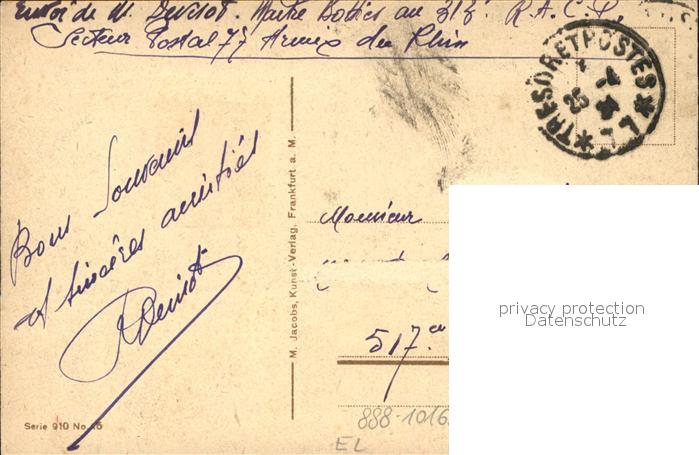 Envoi de M. Devisot. Maître Bottier au 313e R.A.C.P.
Secteur Postal 77 Armée du Rhin
TRESOR ET POSTES * 77 *
Bons Souvenirs
et sincères amitiés
M. Jacobs, Kunst-Verlag, Frankfurt a. M.
Monsieur
517
Serie 910 No
888-1016
EL
privacy protection
Datenschutz